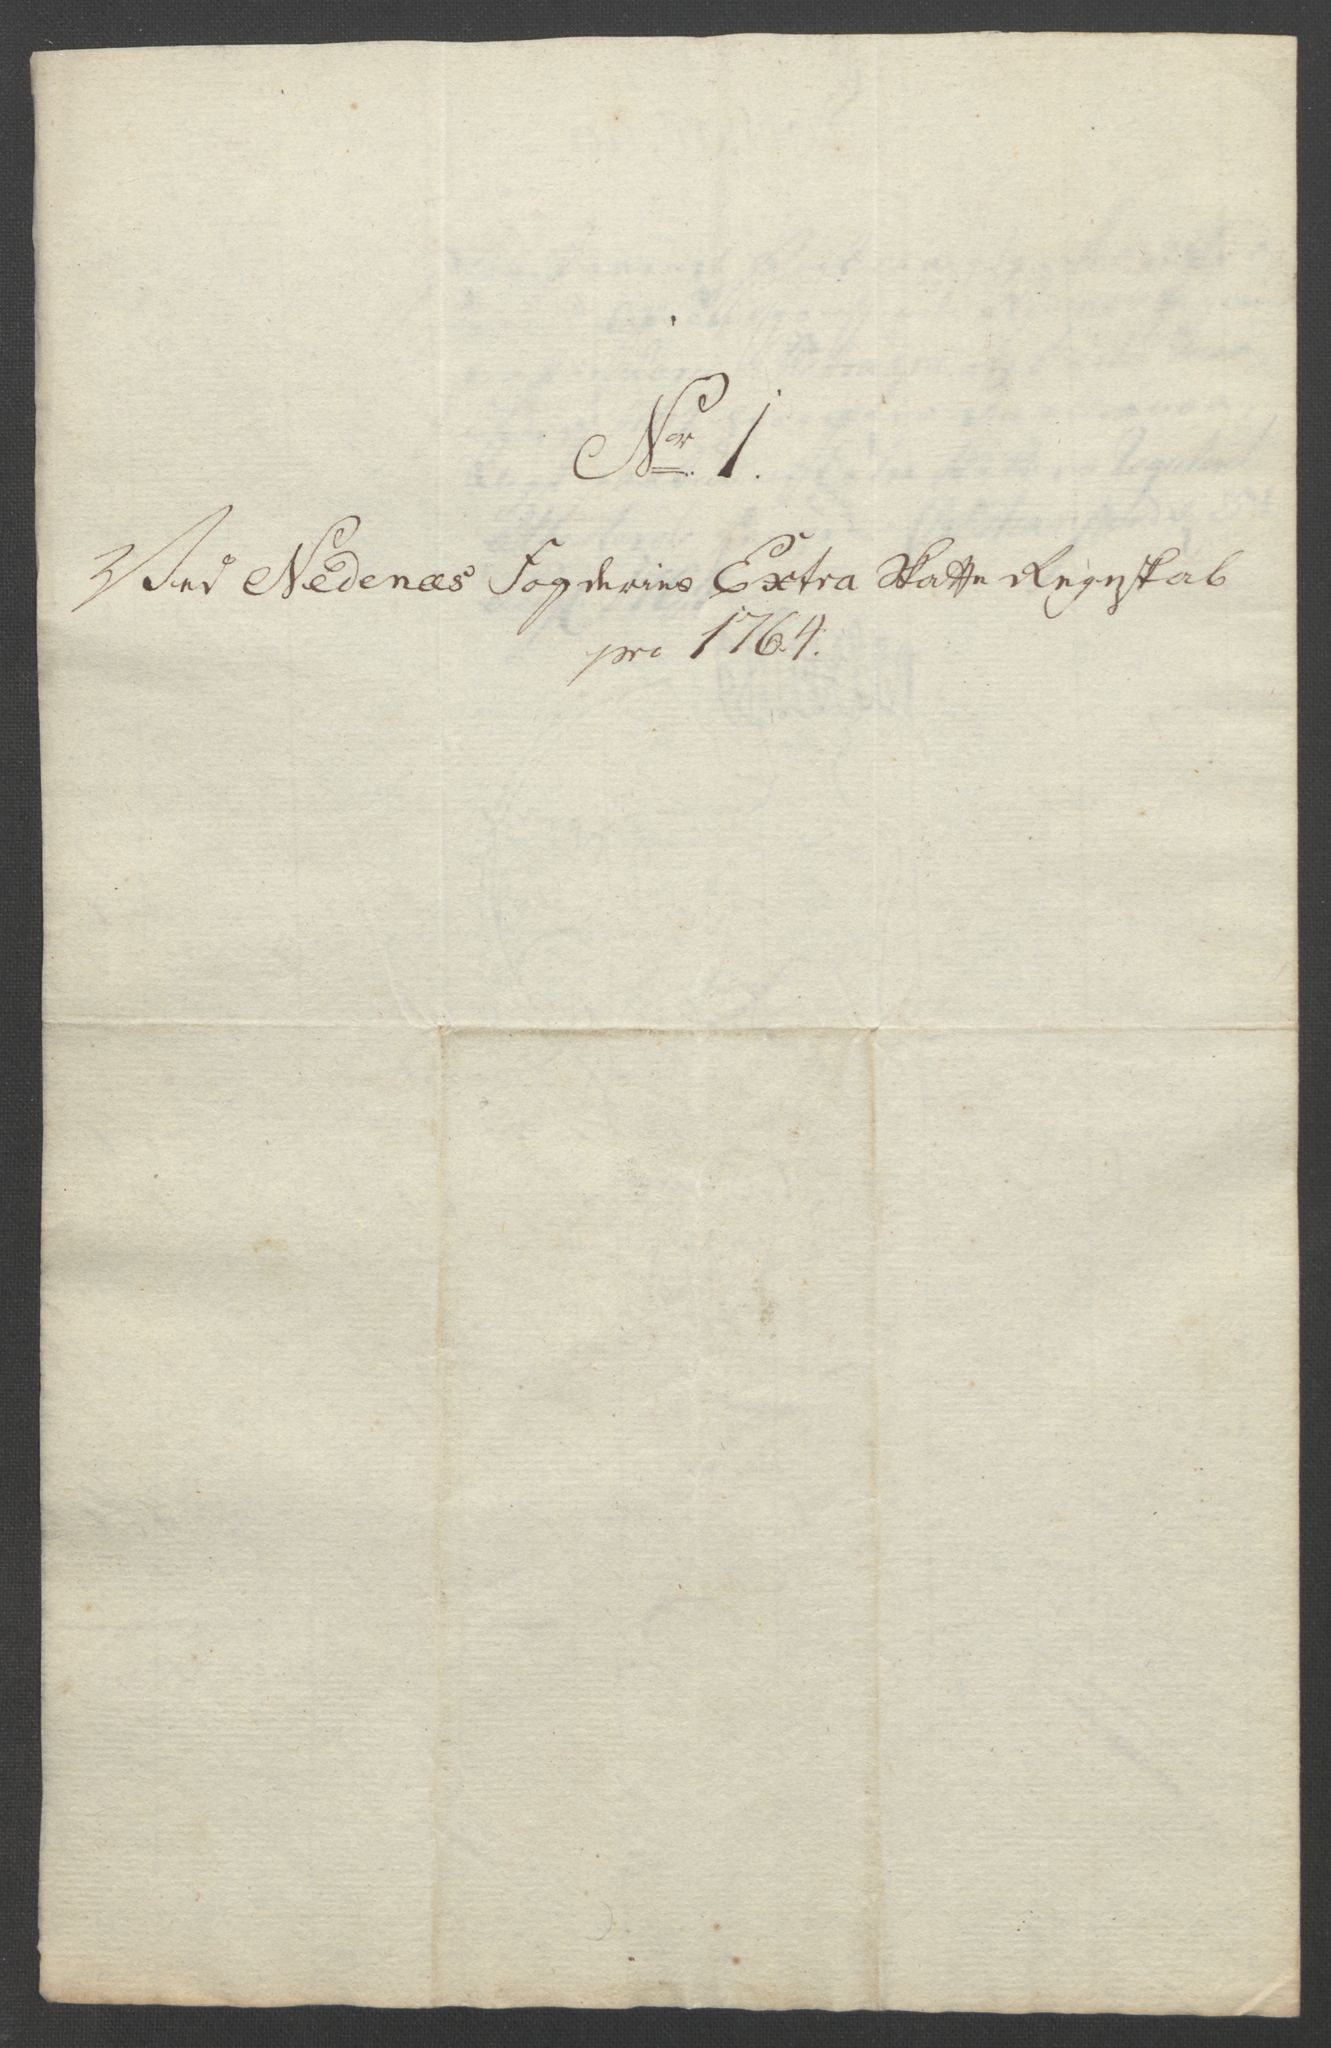 No. 1.
Ved Nedenæs Fogderies Extra Skatte Regnskab
pro 1764.